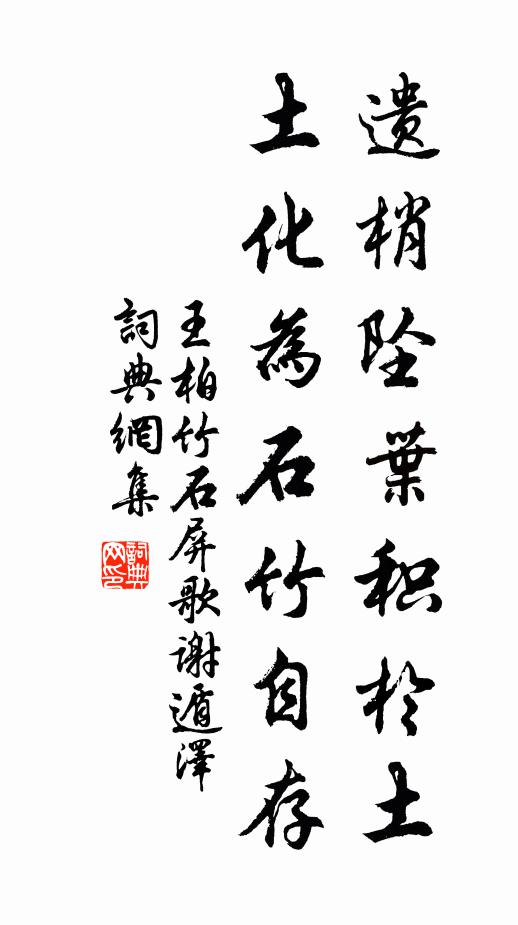 遗梢坠葉积於土
土化為石竹自存
王柏竹石屏歌谢遁澤
詞典網集
詞典网印